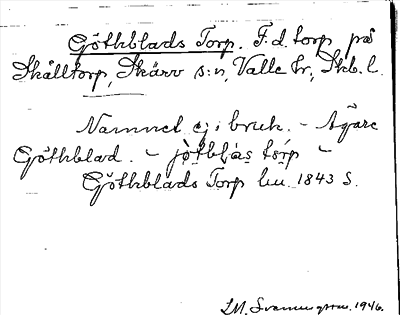 Göthblads Torp. F.d. torp på
Skålltorp, Skärv s:n, Valle hr, Skb. l.
Namnet ej i bruk. – Ägare
Göthblad. – jòtblàs tórp –
Göthblads Torp hu. 1843 S.
1946.